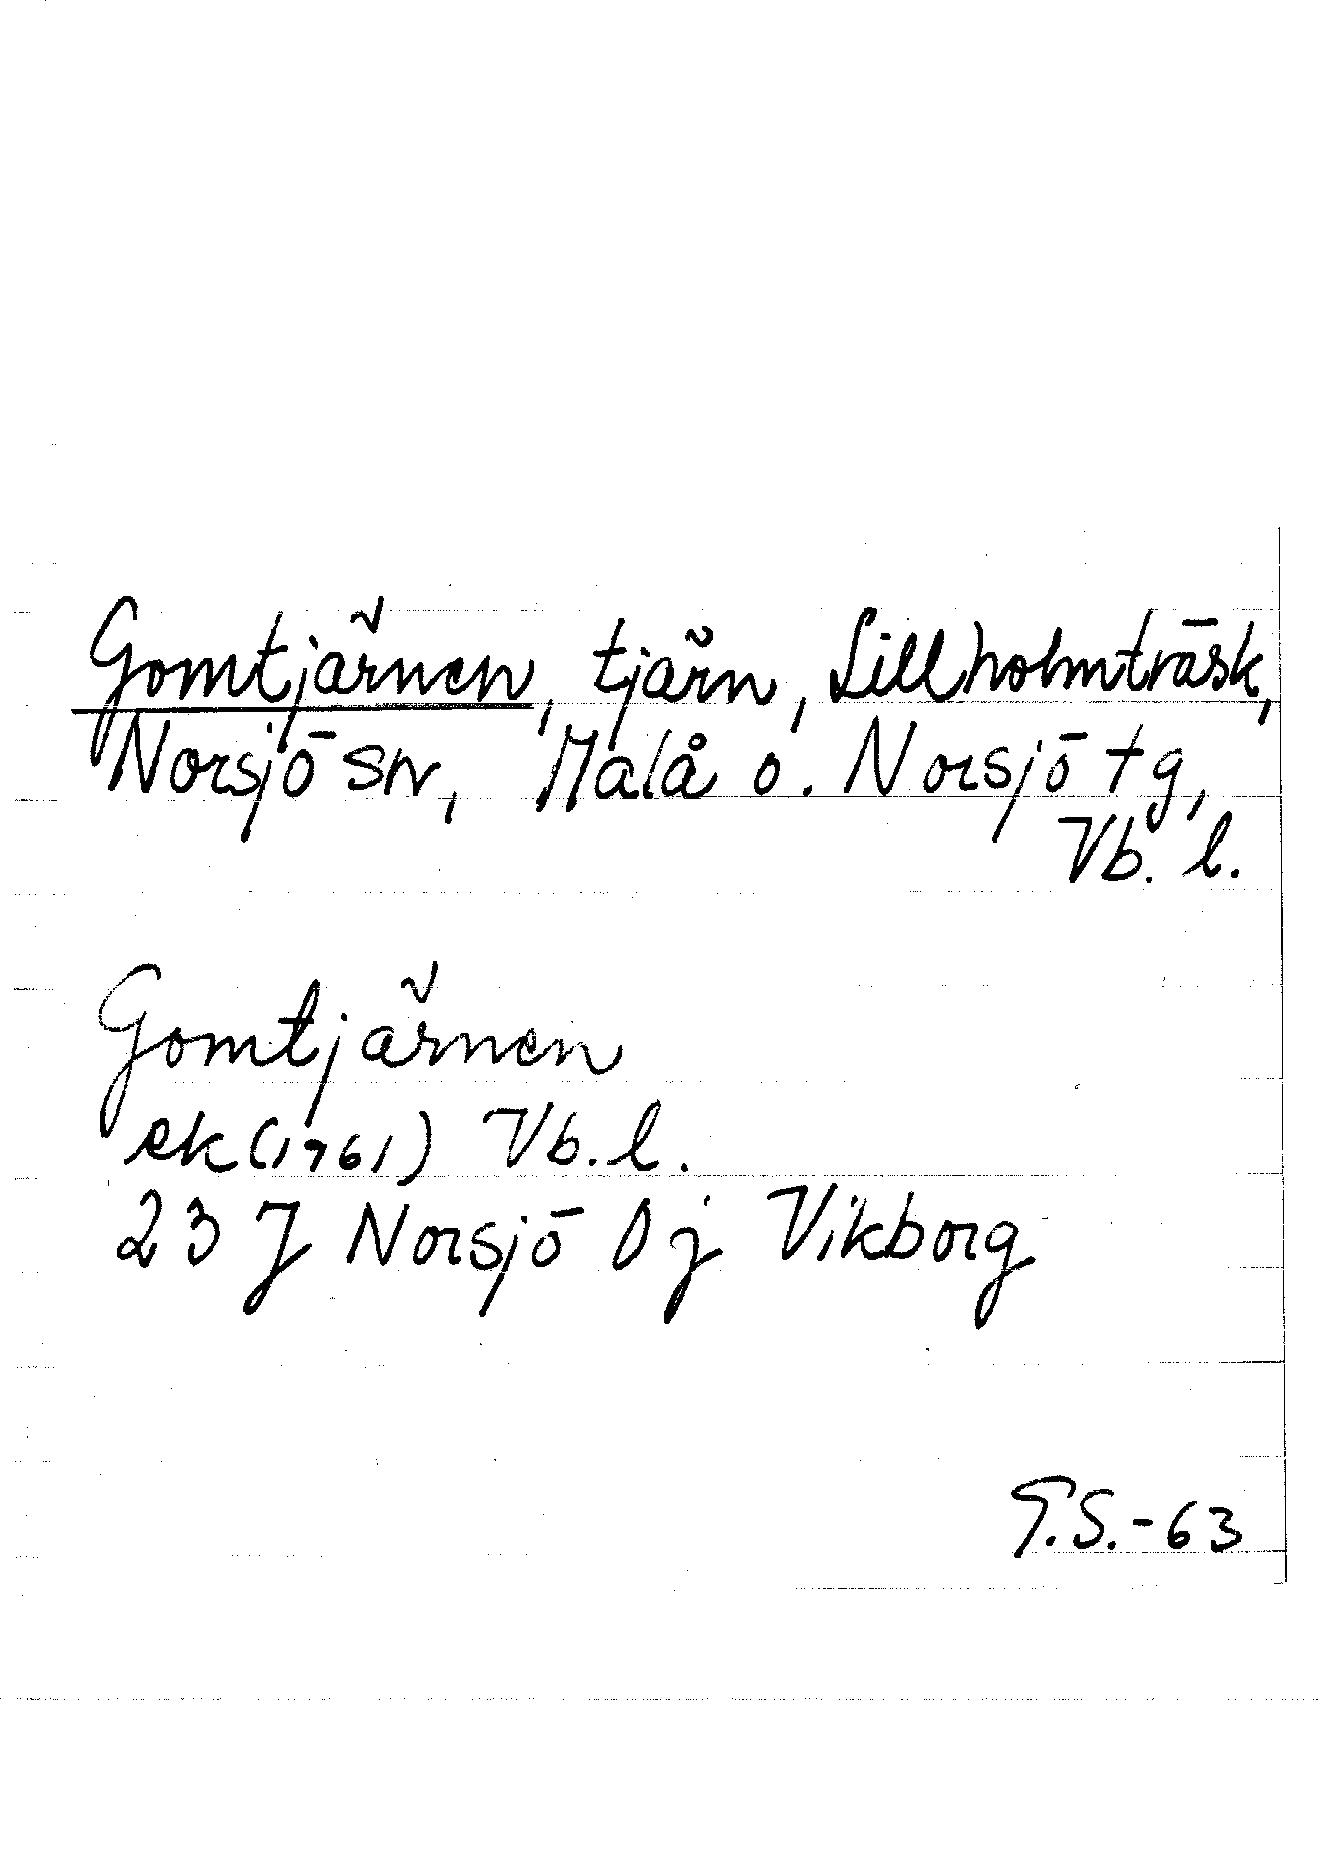 Gomtjärnen, tjärn, Lillholmträsk,
Norsjö sn, Malå o. Norsjö tg,
Vb. l.
Gomtjärnen
ek (1961) Vb. l.
23 J Norsjö 0 j Vikborg
G.S.-63